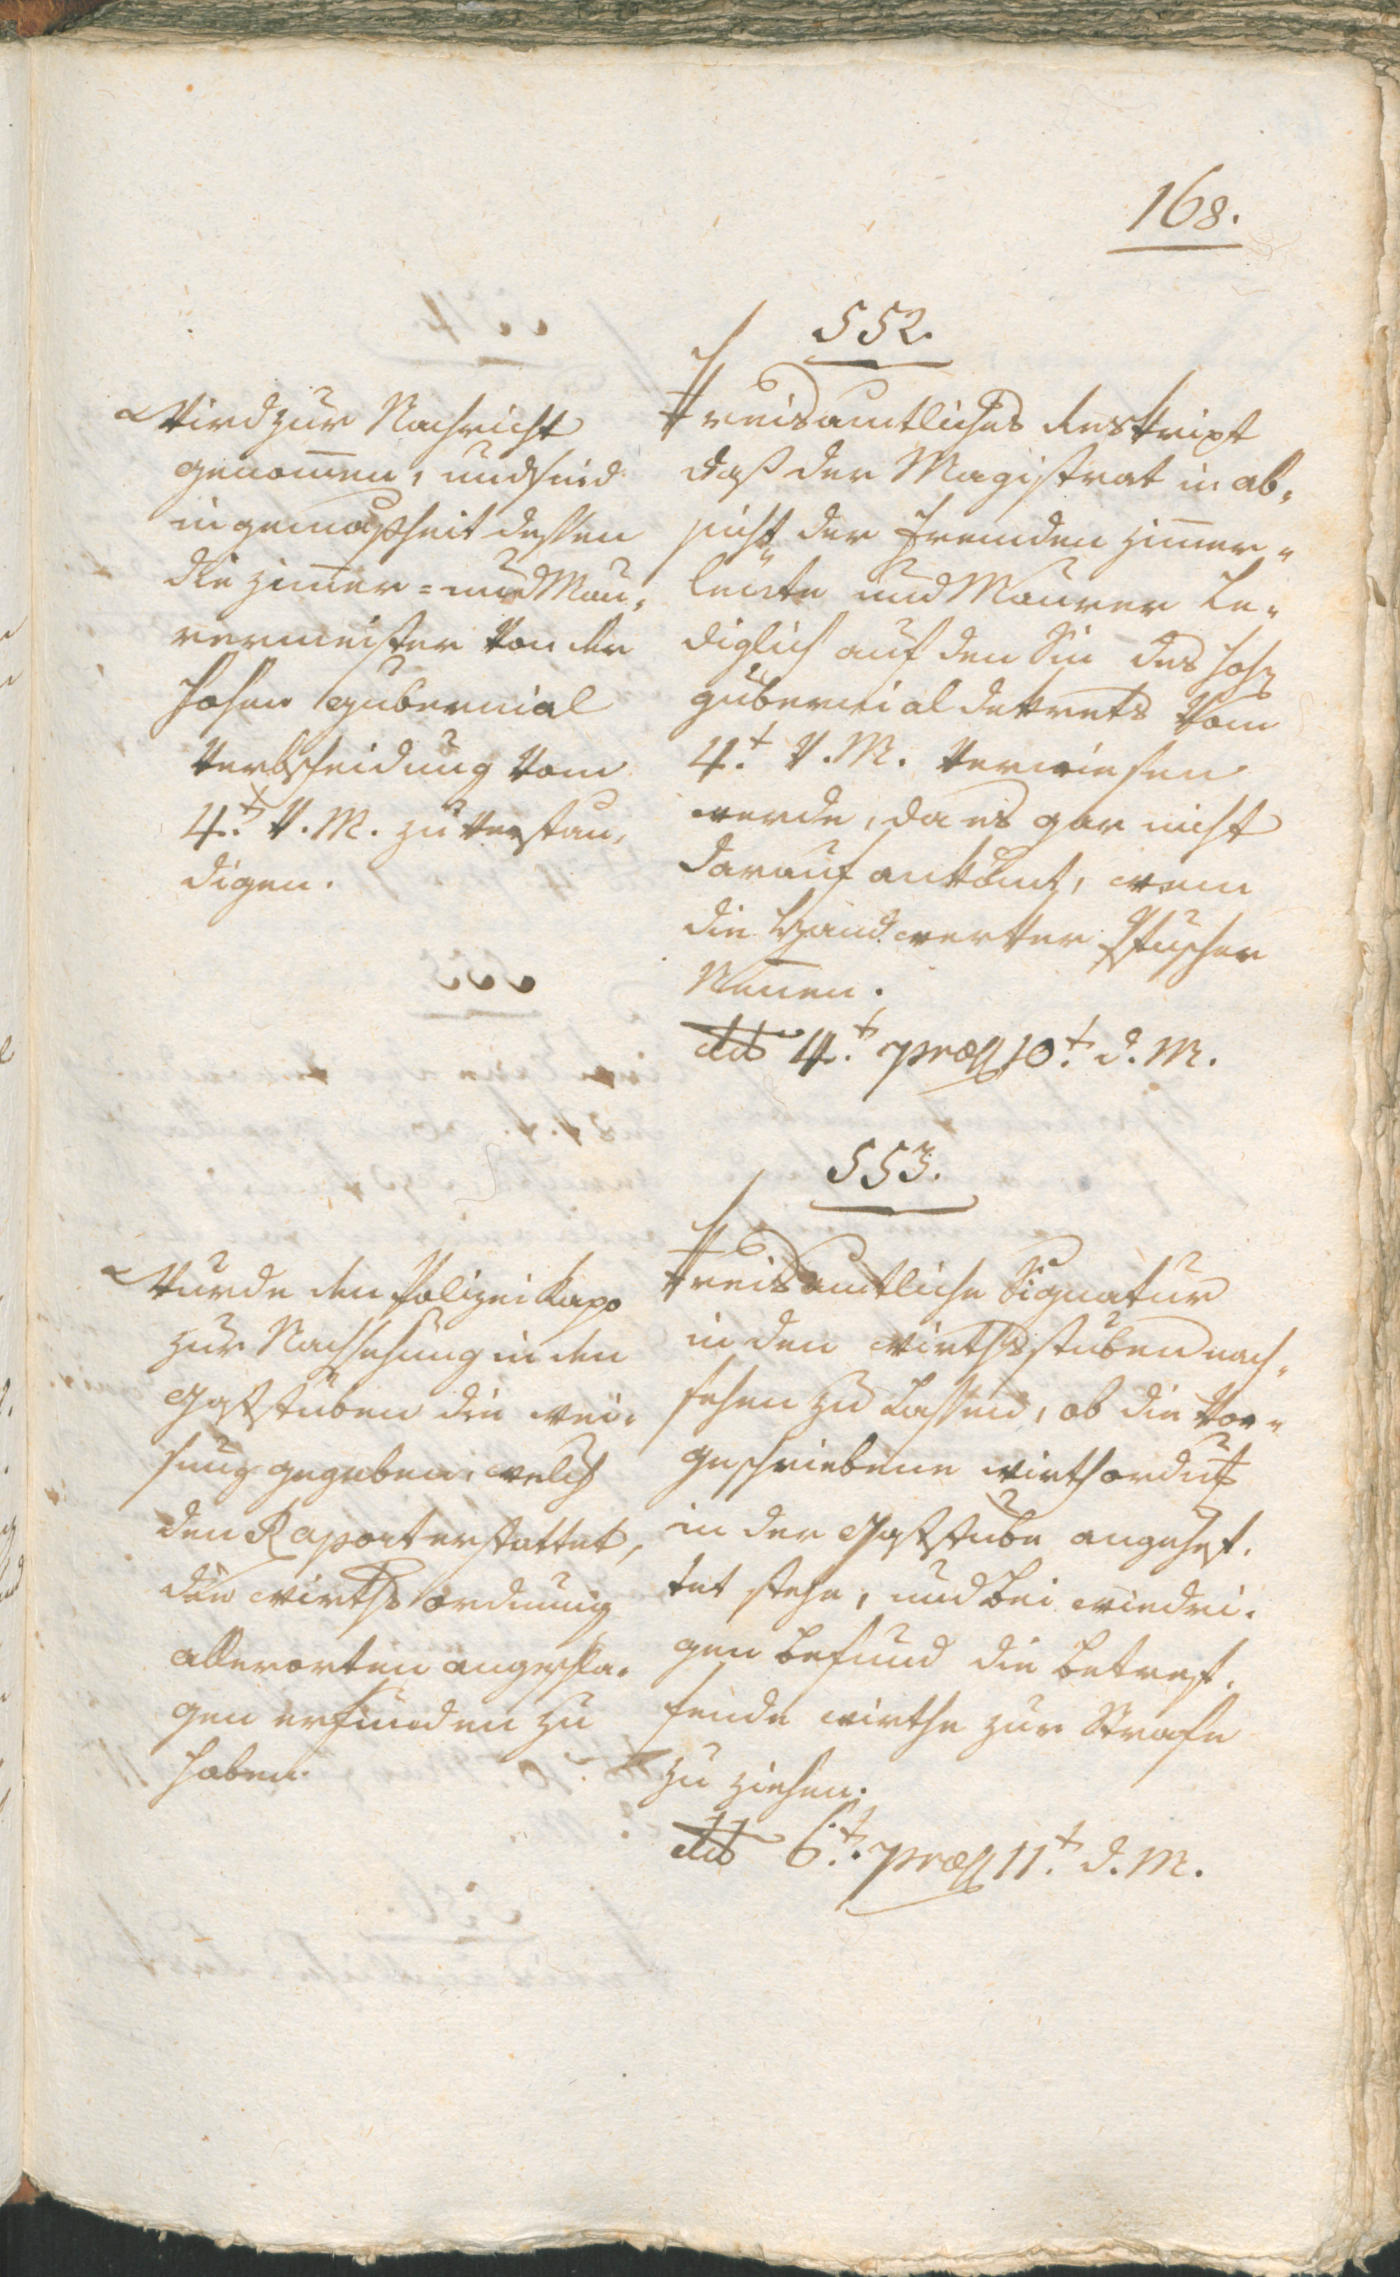 168.
552.
Kreisamtliches Reskript
daß der Magistrat in ab-
sicht der fremden Zimer-
leüte und Maurer Le-
diglich auf den Sin des hoh
gubernial dekrets vom
4.t v. M. verwiesen
werde, da es gar nicht
darauf ankömt, wem
die Handwerker Pfuscher
Nenen.
ddto 4.t præs 10.t d. M.
Wird zur Nachricht
genomen, und seid
in gemäßheit dessen
die Zimer= und Mau-
rermeister von der
hohen gubernial
Verbscheidung vom
4.t v. M. zu verstän-
digen.
553.
Kreisamtliche Signatur
in den wirthsstuben nach-
sehen zu Lassen, ob die vor-
geschriebene wirthordng
in der Gaststube angehef-
tet stehe, und bei wiedri-
gen befund die betref-
fende wirthe zur Strafe
zu ziehen.
ddto 6.t præs 11.t d. M.
Wurde den Polizei Kapo
zur Nachsehung in den
Gaststuben die wei-
sung gegeben, welch
den Raport erstattet,
die wirths ordnung
allerorten angeschla-
gen erfunden zu
haben.